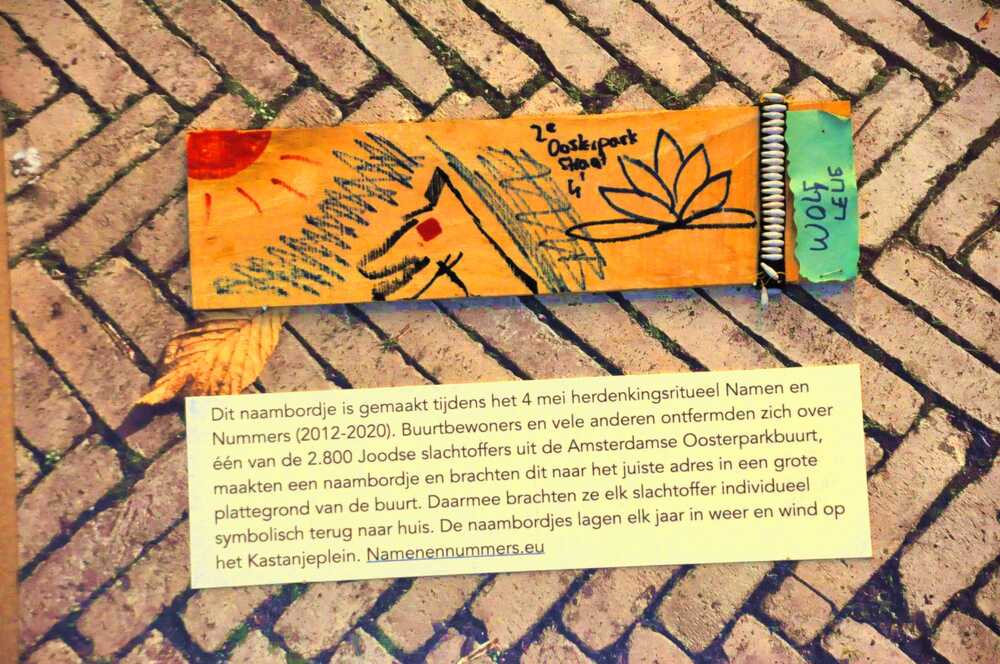 2e
Oosterpark
straat
4'
WOLF
LELIE
Dit naambordje is gemaakt tijdens het 4 mei herdenkingsritueel Namen en
Nummers (2012-2020). Buurtbewoners en vele anderen ontfermden zich over
één van de 2.800 Joodse slachtoffers uit de Amsterdamse Oosterparkbuurt,
maakten een naambordje en brachten dit naar het juiste adres in een grote
plattegrond van de buurt. Daarmee brachten ze elk slachtoffer individueel
symbolisch terug naar huis. De naambordjes lagen elk jaar in weer en wind op
het Kastanjeplein. Namenennummers.eu